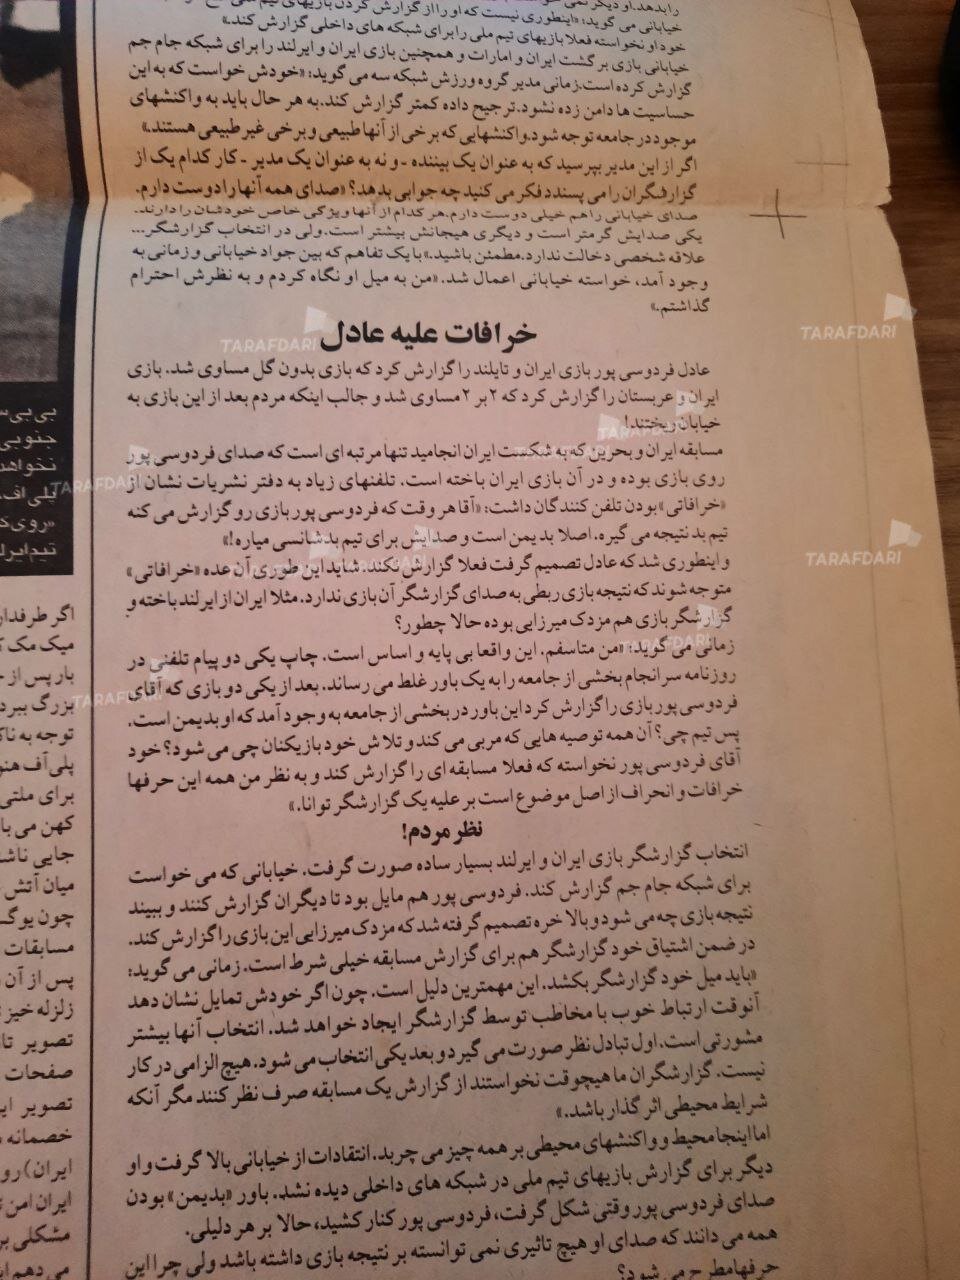 را بدهد. او دیگر نمی
خیابانی می گوید: «اینطوری نیست که او را از گزارش کردن بازیهای تیم ملی
خود او نخواسته فعلا بازیهای تیم ملی را برای شبکه های داخلی گزارش کند.»
خیابانی بازی برگشت ایران و امارات و همچنین بازی ایران و ایرلند را برای شبکه جام جم
گزارش کرده است. زمانی مدیر گروه ورزش شبکه سه می گوید: «خودش خواست که به این
حساسیت ها دامن زده نشود. ترجیح داده کمتر گزارش کند. به هر حال باید به واکنشهای
موجود در جامعه توجه شود. واکنشهایی که برخی از آنها طبیعی و برخی غیر طبیعی هستند.»
اگر از این مدیر بپرسید که به عنوان یک بیننده - و نه به عنوان یک مدیر - کار کدام یک از
گزارشگران را می پسندد فکر می کنید چه جوابی بدهد؟ «صدای همه آنها را دوست دارم.
صدای خیابانی را هم خیلی دوست دارم. هر کدام از آنها ویژگی خاص خودشان را دارند.
یکی صدایش گرمتر است و دیگری هیجانش بیشتر است. ولی در انتخاب گزارشگر...
علاقه شخصی دخالت ندارد. مطمئن باشید.» با یک تفاهم که بین جواد خیابانی و زمانی به
وجود آمد، خواسته خیابانی اعمال شد. «من به میل او نگاه کردم و به نظرش احترام
گذاشتم.»
خرافات علیه عادل
عادل فردوسی پور بازی ایران و تایلند را گزارش کرد که بازی بدون گل مساوی شد. بازی
ایران و عربستان را گزارش کرد که ۲ بر ۲ مساوی شد و جالب اینکه مردم بعد از این بازی به
خیابان ریختند!
مسابقه ایران و بحرین که به شکست ایران انجامید تنها مرتبه ای است که صدای فردوسی پور
روی بازی بوده و در آن بازی ایران باخته است. تلفنهای زیاد به دفتر نشریات نشان از
«خرافاتی» بودن تلفن کنندگان داشت: «آقا هر وقت که فردوسی پور بازی رو گزارش می کنه
تیم بد نتیجه می گیره. اصلا بدیمن است و صدایش برای تیم بدشانسی میاره!»
و اینطوری شد که عادل تصمیم گرفت فعلا گزارش نکند. شاید این طوری آن عده «خرافاتی»
متوجه شوند که نتیجه بازی ربطی به صدای گزارشگر آن بازی ندارد. مثلا ایران از ایرلند باخته و
گزارشگر بازی هم مزدک میرزایی بوده حالا چطور؟
زمانی می گوید: «من متاسفم. این واقعا بی پایه و اساس است. چاپ یکی دو پیام تلفنی در
روزنامه سرانجام بخشی از جامعه را به یک باور غلط می رساند. بعد از یکی دو بازی که آقای
فردوسی پور بازی را گزارش کرد این باور در بخشی از جامعه به وجود آمد که او بدیمن است.
پس تیم چی؟ آن همه توصیه هایی که مربی می کند و تلاش خود بازیکنان چی می شود؟ خود
آقای فردوسی پور نخواسته که فعلا مسابقه ای را گزارش کند و به نظر من همه این حرفها
خرافات و انحراف از اصل موضوع است بر علیه یک گزارشگر توانا.»
نظر مردم!
انتخاب گزارشگر بازی ایران و ایرلند بسیار ساده صورت گرفت. خیابانی که می خواست
برای شبکه جام جم گزارش کند. فردوسی پور هم مایل بود تا دیگران گزارش کنند و ببیند
نتیجه بازی چه می شود و بالاخره تصمیم گرفته شد که مزدک میرزایی این بازی را گزارش کند.
در ضمن اشتیاق خود گزارشگر هم برای گزارش مسابقه خیلی شرط است. زمانی می گوید:
«باید میل خود گزارشگر بکشد. این مهمترین دلیل است. چون اگر خودش تمایل نشان دهد
آنوقت ارتباط خوب با مخاطب توسط گزارشگر ایجاد خواهد شد. انتخاب آنها بیشتر
مشورتی است. اول تبادل نظر صورت می گیرد و بعد یکی انتخاب می شود. هیچ الزامی در کار
نیست. گزارشگران ما هیچوقت نخواستند از گزارش یک مسابقه صرف نظر کنند مگر آنکه
شرایط محیطی اثر گذار باشد.»
اما اینجا محیط و واکنشهای محیطی بر همه چیز می چربد. انتقادات از خیابانی بالا گرفت و او
دیگر برای گزارش بازیهای تیم ملی در شبکه های داخلی دیده نشد. باور «بدیمن» بودن
صدای فردوسی پور وقتی شکل گرفت، فردوسی پور کنار کشید، حالا بر هر دلیلی.
همه می دانند که صدای او هیچ تاثیری نمی توانسته بر نتیجه بازی داشته باشد ولی چرا این
حرفها مطرح می شود؟
بی بی س
جنوبی
نخواهد
پلی اف،
«روی ک
تیم ایرل
اگر طرفدار
میک مک ک
بار پس از
بزرگ ببرد
توجه به ناک
پلی آف هنو
برای ملتی
کهن می با
جایی ناش
میان آتش
چون یوگ
مسابقات
پس از آن
زلزله خیز
تصویر تا
صفحات
تصویر ایر
خصمانه
ایران) رو
ایران امن
مشکلی بر
می دهم ای
TARAFDARI
TARAFDARI
TARAFDARI
TARAFDARI
TARAFDARI
TARAFDARI
TARAFDARI
TARAFDARI
TARAFDARI
TARAFDARI